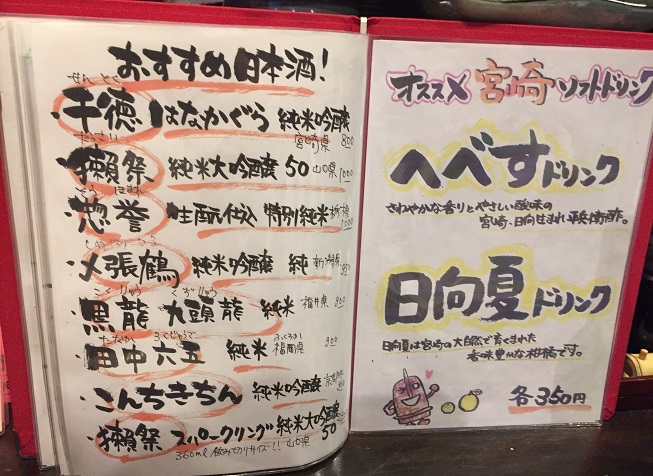 おすすめ日本酒!
せんとく
千徳 はなかぐら 純米吟醸
宮崎県 800
だっさい
獺祭 純米大吟醸 50 山口県 1000
そう ほまれ
惣誉 生酛仕込 特別純米 栃木県 1000
しめ はり つる
〆張鶴 純米吟醸 純 新潟県
こくりゅう くずりゅう
黒龍 九頭龍 純米 福井県 900
たなか ろくじゅうご
田中六五 純米 福岡県 900
こんちきちん 純米吟醸 京都府
獺祭 スパークリング 純米大吟醸 50
360ml 飲み切りサイズ!! 山口県
オススメ 宮崎 ソフトドリンク
へべすドリンク
さわやかな香りとやさしい酸味の
宮崎・日向生まれ 平兵衛酢。
日向夏ドリンク
日向夏は宮崎の大自然で育くまれた
香味豊かな柑橘です。
各350円